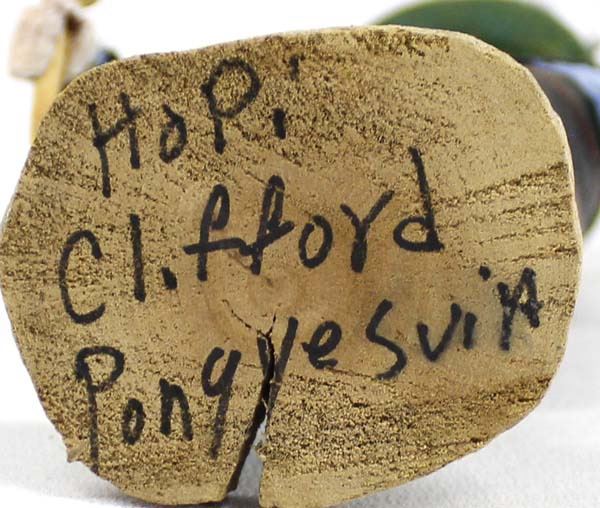 HoPi
Clifford
Pongyesvia